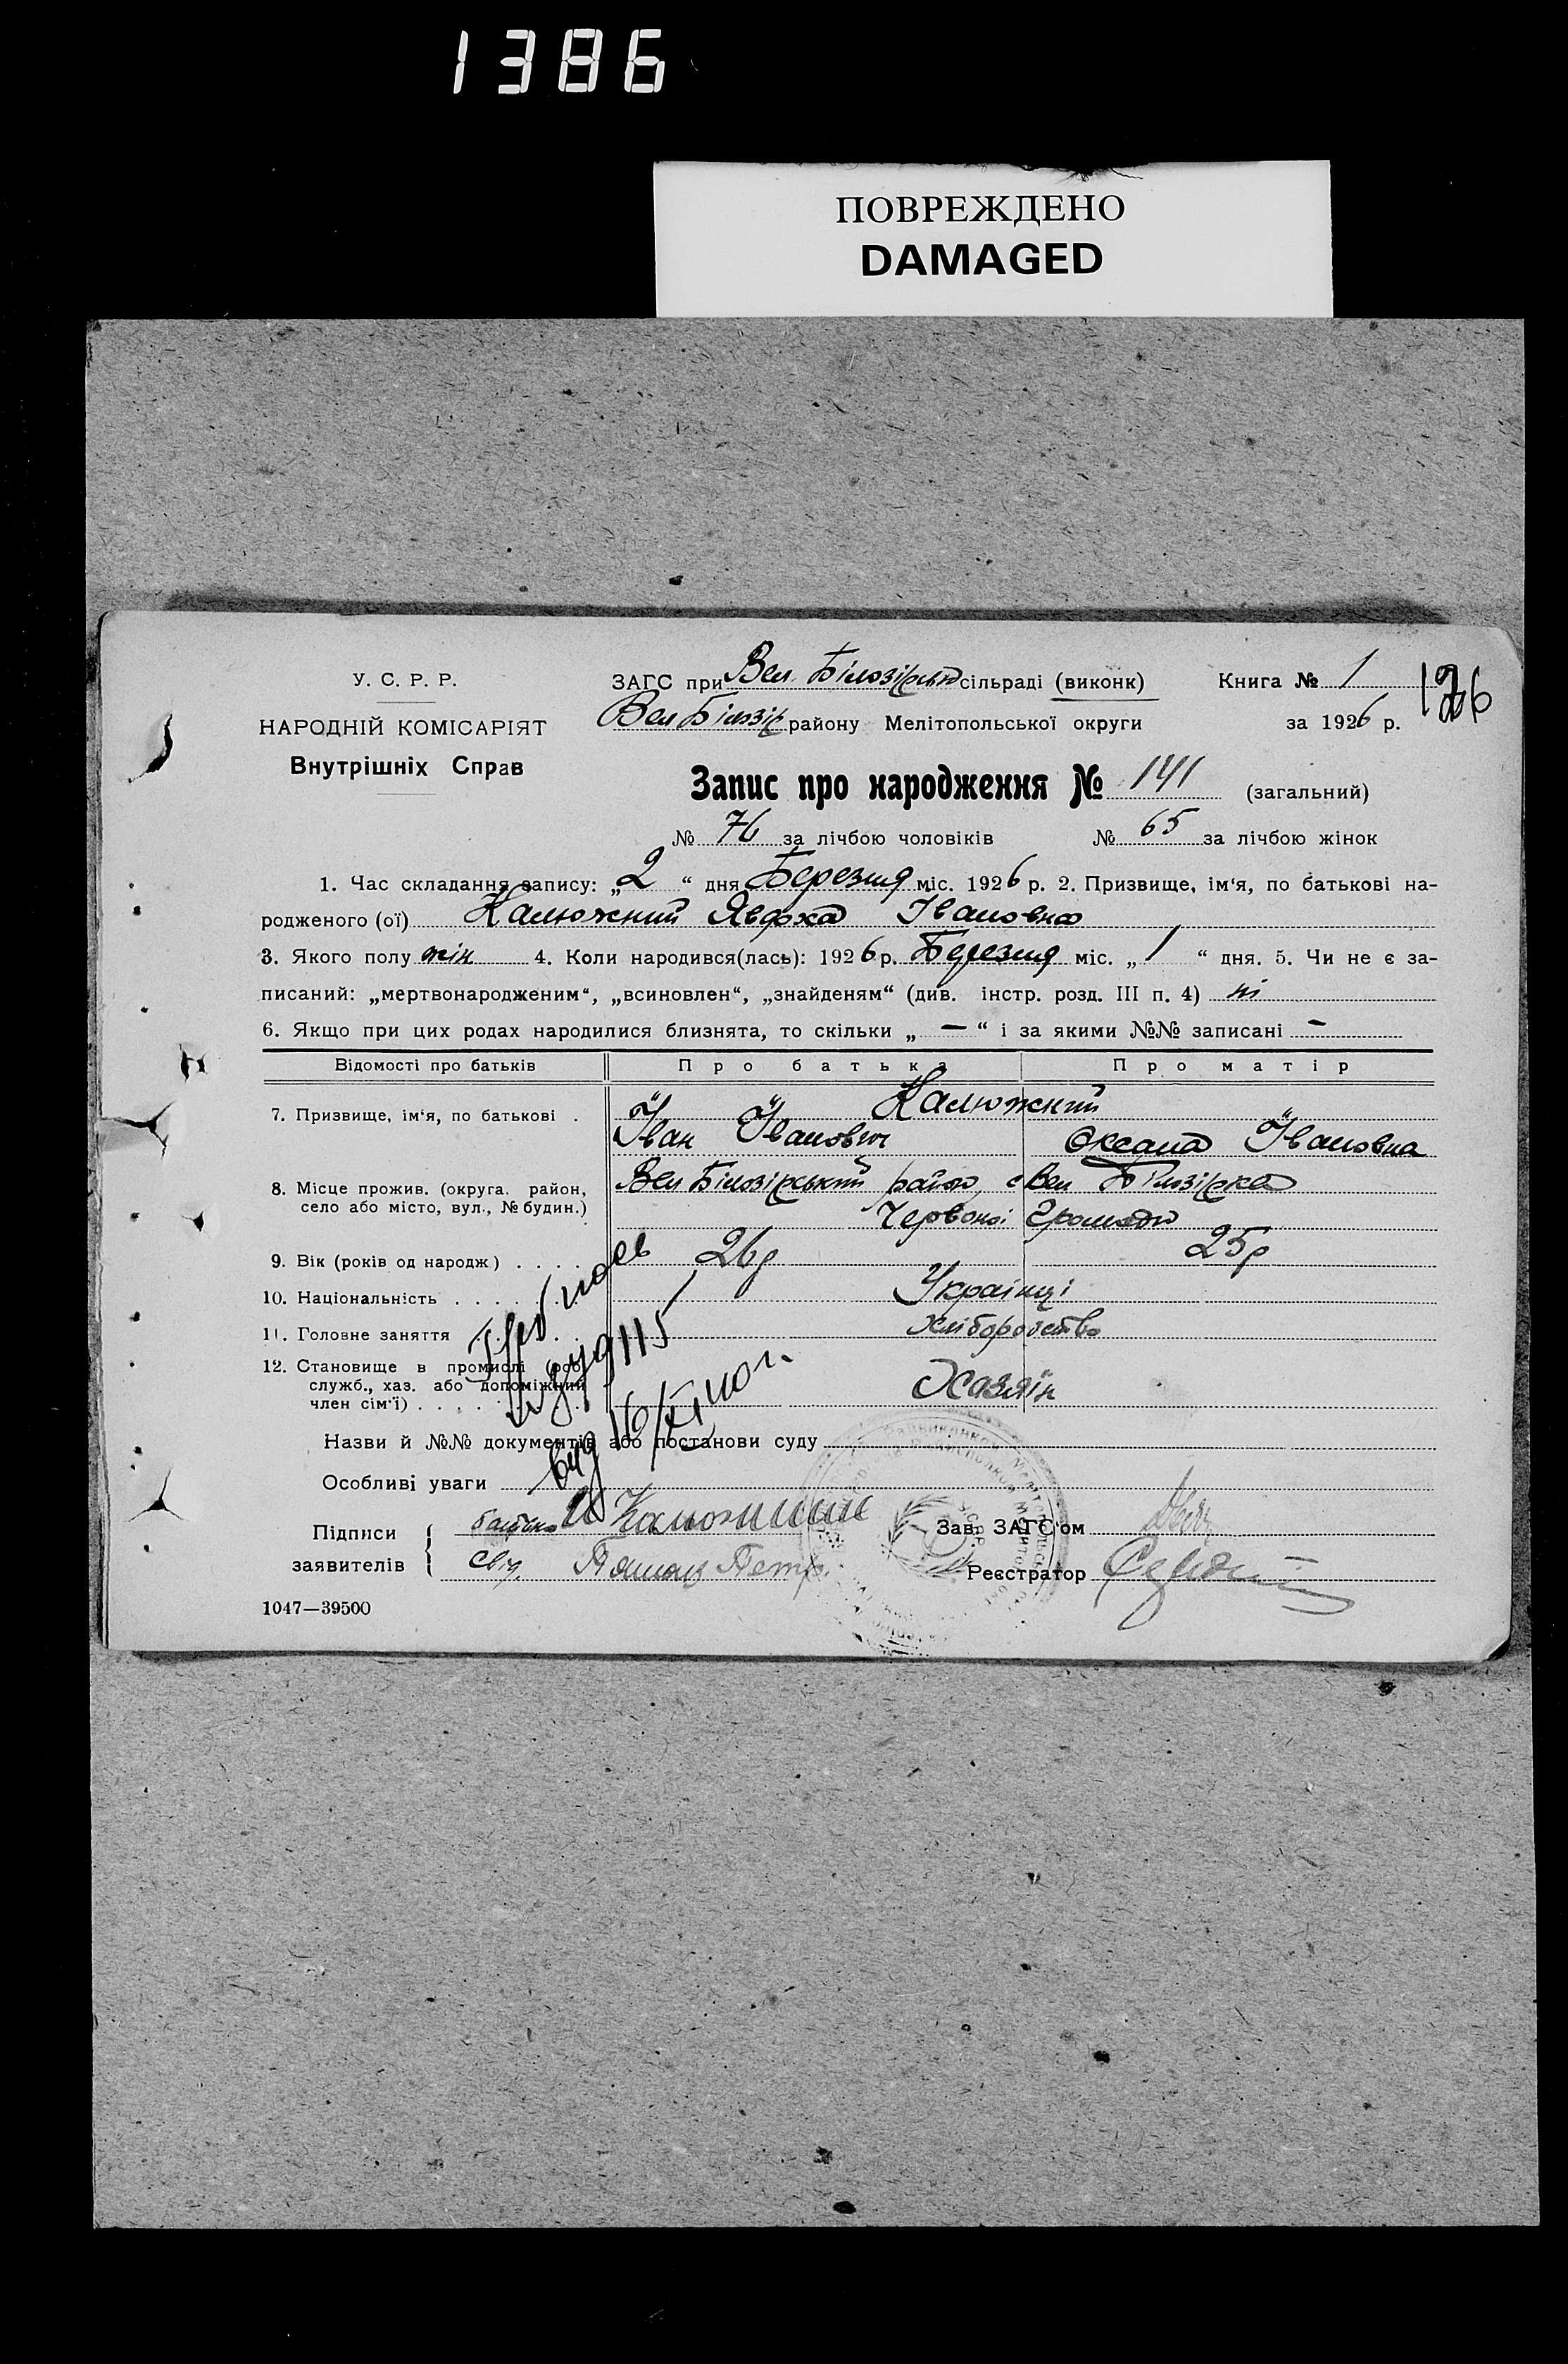 1386
ПОВРЕЖДЕНО
DAMAGED
У. С. Р. Р.
НАРОДНІЙ КОМІСАРІЯТ
Внутрішніх Справ
ЗАГС при Вел. Білозірські сільраді (виконк)
Книга № 1
Вел Білозір району Мелітопольської округи
за 1926 р.
Запис про народження № 141 (загальний)
№ 76 за лічбою чоловіків № 65 за лічбою жінок
1. Час складання запису: „2“ дня Березня міс. 1926 р. 2. Призвище, ім‘я, по батькові на-
родженого (ої) Калюжний Явдоха Івановна
3. Якого полу жін 4. Коли народився(лась): 1926 р. Березня міс. „1“ дня. 5. Чи не є за-
писаний: „мертвонародженим“, „всиновлен“, „знайденям“ (див. інстр. розд. III п. 4) ні
6. Якщо при цих родах народилися близнята, то скільки „—“ і за якими №№ записані —
Відомості про батьків
Про батька
Про матір
7. Призвище, ім‘я, по батькові .
Калюжний
Іван Іванович
Оксана Івановна
8. Місце прожив. (округа. район,
село або місто, вул., № будин.)
Вел Білозірський район, с Вел Білозірка
Червоної Громади
9. Вік (років од народж) . . . .
26р
25р
10. Національність . . . . . .
Українці
11. Головне заняття
Хліборобство
12. Становище в промислі (роб.
служб., хаз. або допоміжний
член сім‘ї) . . . . .
Хазяїн
Назви й №№ документів або постанови суду
Особливі уваги
Підписи
заявителів
батько И Калюжний
Свід. Петр
Зав. ЗАГС‘ом
Реєстратор
1047—39500